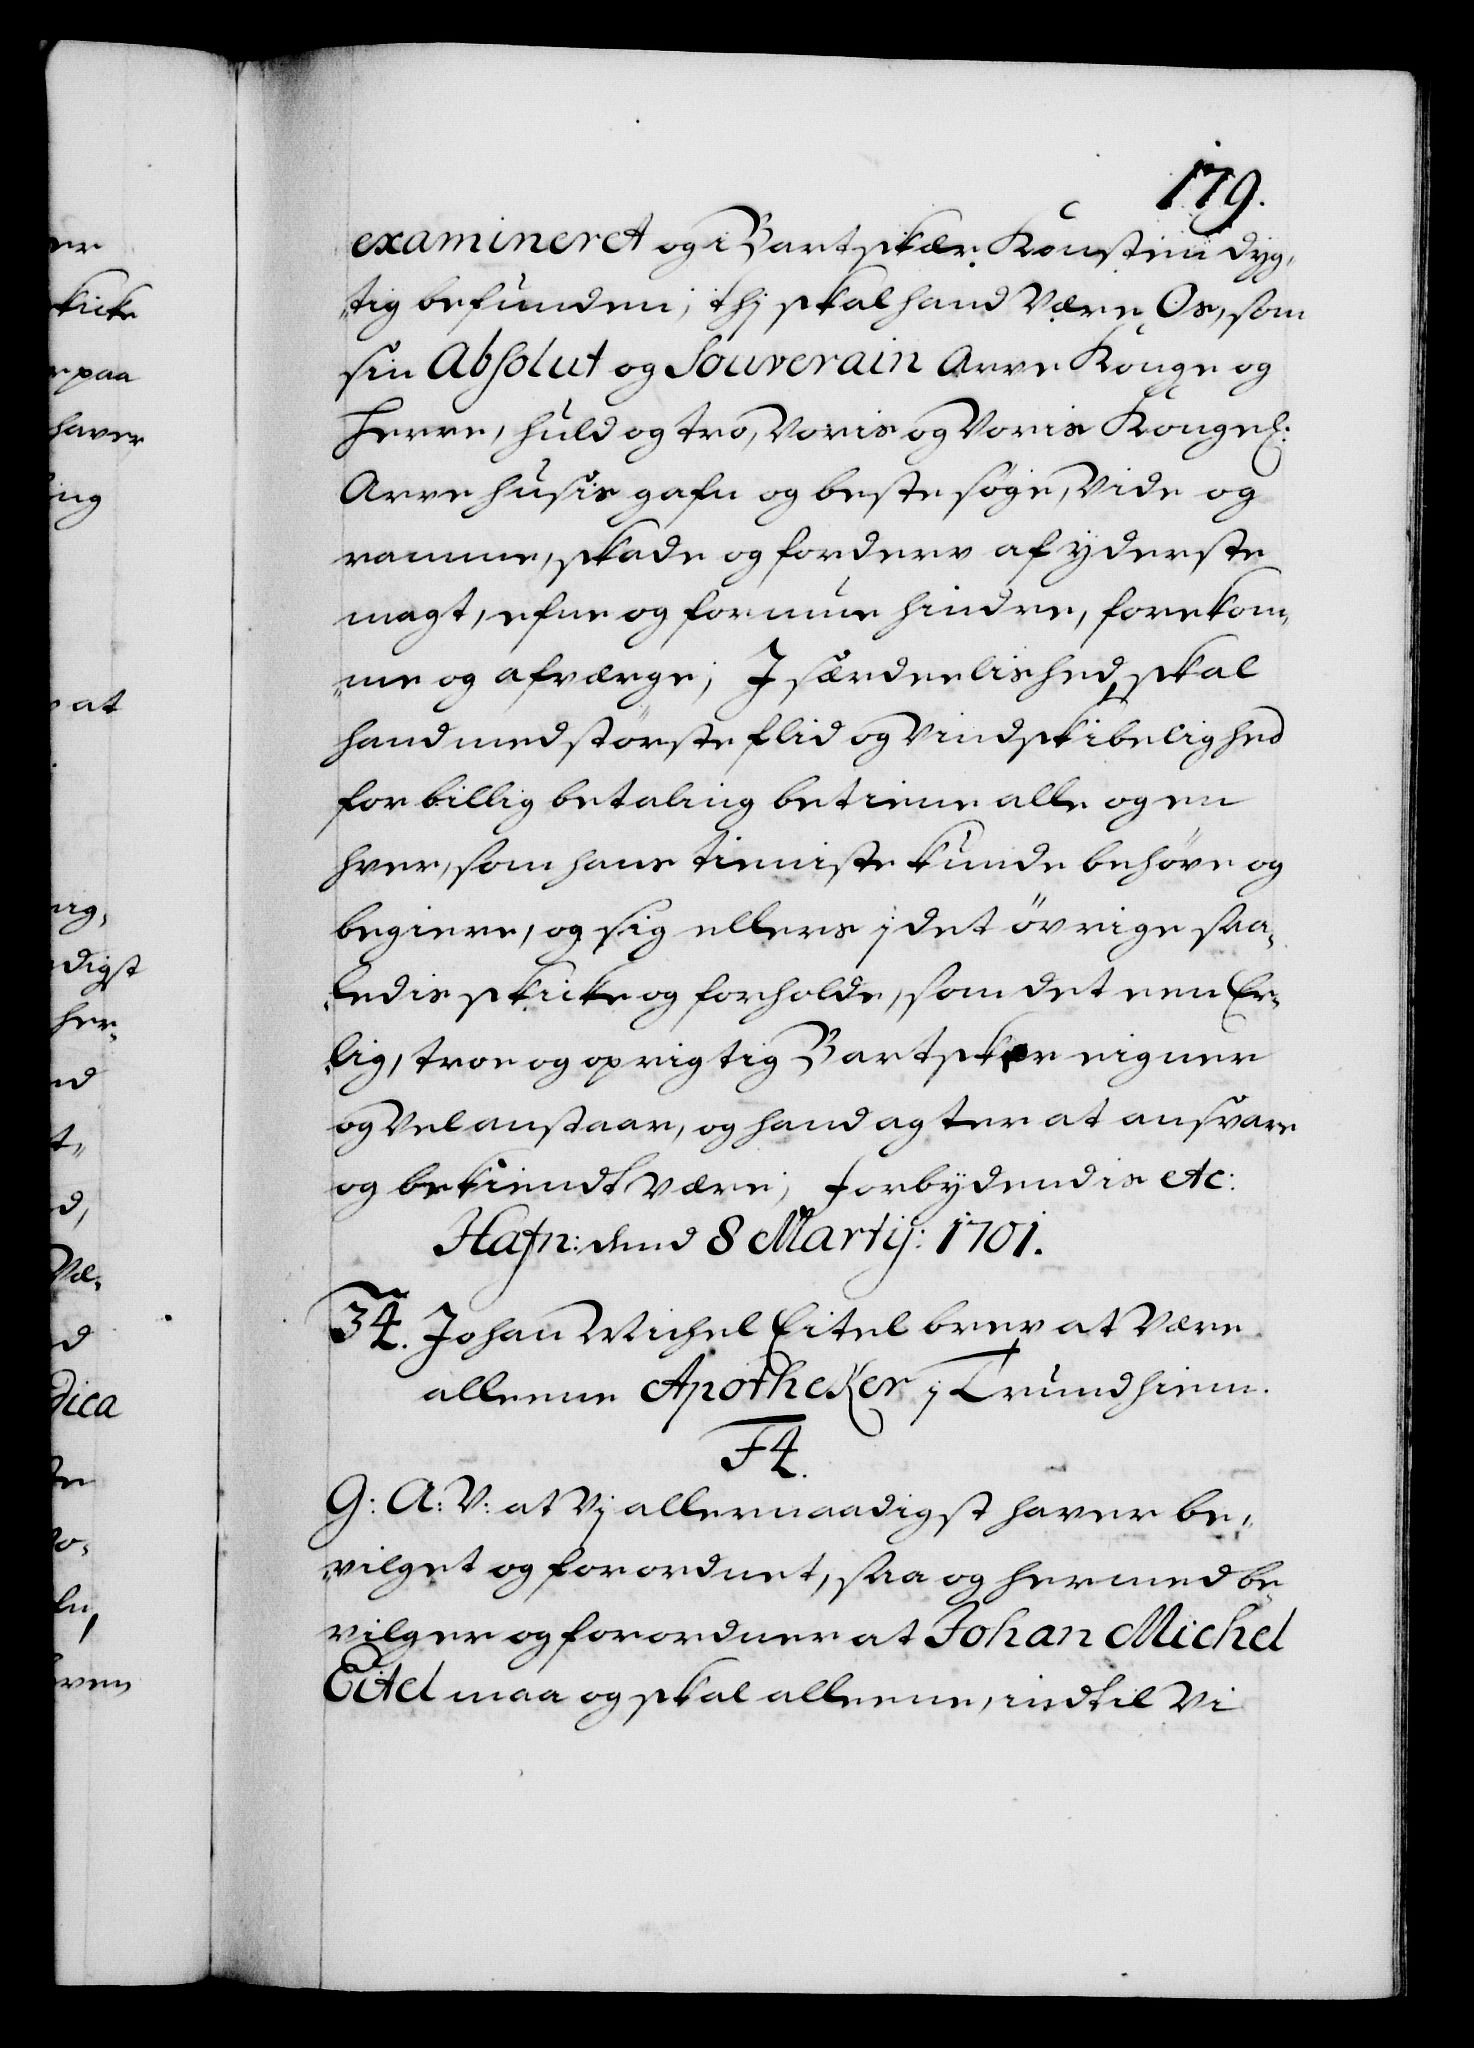 179.
examineret og i Bartskær Konsten dyg-
tig befunden, thj skal hand Være Os, som
sin Absolut og Souverain Arve Konge og
Herre, huld og tro, Voris og Voris Kongel:
Arve husis gafn og beste søge, Vide og
ramme, skade og forderv af yderste
magt, efne og formue hindre, forekom-
me og afværge; J særdeelished skal
hand med största flid og Vindskibelighed
for billig betaling betiene alle og en
hver, som hans tieniste kunde behöve og
begiere, og sig ellers j det övrige saa-
ledis skicke og forholde, som det een Er-
lig, troe og oprigtig Bartskær eigner
og Vel anstaar, og hand agter at ansvare
og bekiendt Være, forbydendis etc:
Hafn: dend 8 Martij: 1701.
34. Johan Michel Eitel brev at Være
alleene Apotheker j Trundhiem.
F4.
G: A: V: at Vj allernaadigst haver be-
vilget og forordnet, saa og hermed be-
vilger og forordner at Johan Michel
Eitel maa og skal alleene, indtil Vi
er
skicke
paa
haver
ing
at
digst
her-
nd
d,
Væ-
d
dica